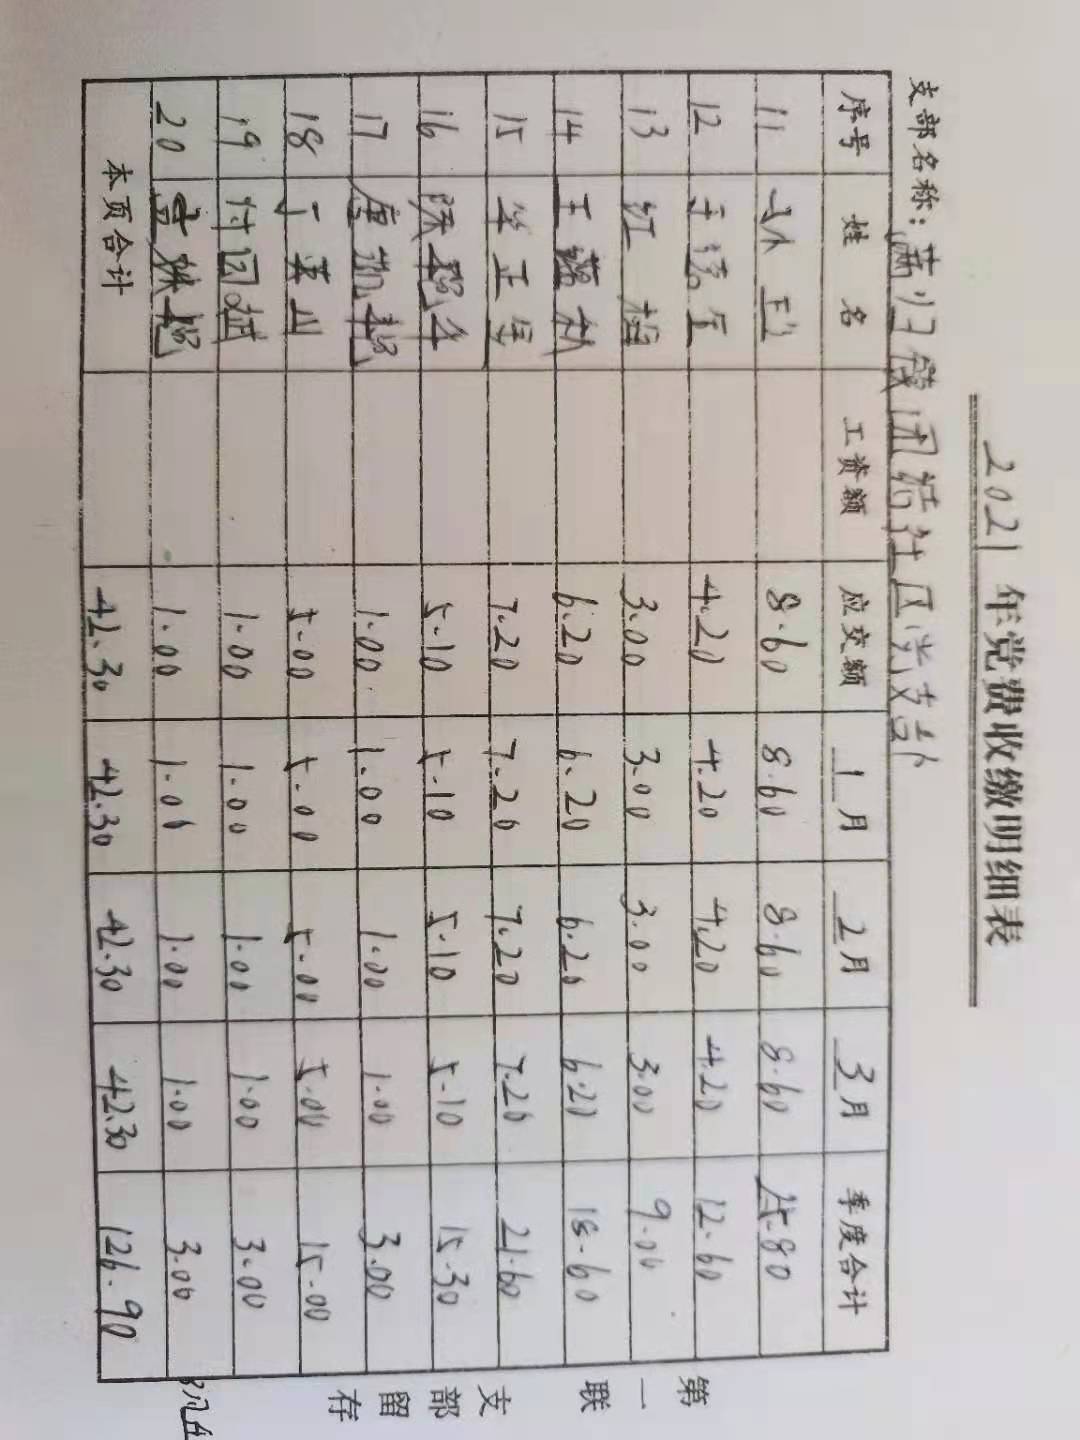 2021 年党费收缴明细表
支部名称：满归镇团结社区党支部
序号 姓名 工资额 应交额 1月 2月 3月 季度合计
11 8.60 8.60 8.60 8.60 25.80
12 4.20 4.20 4.20 4.20 12.60
13 3.00 3.00 3.00 3.00 9.00
14 王 6.20 6.20 6.20 6.20 18.60
15 7.20 7.20 7.20 7.20 21.60
16 陈 5.10 5.10 5.10 5.10 15.30
17 唐凯艳 1.00 1.00 1.00 1.00 3.00
18 丁 5.00 5.00 5.00 5.00 15.00
19 付国斌 1.00 1.00 1.00 1.00 3.00
20 1.00 1.00 1.00 1.00 3.00
本页合计 42.30 42.30 42.30 42.30 126.90
第一联 支部留存